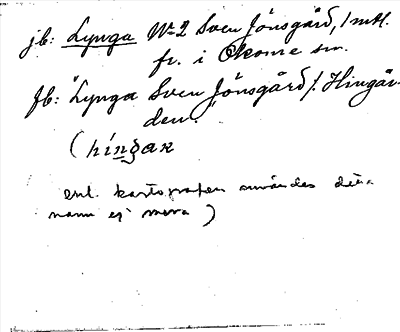 jb: Lynga Nr 2 Sven Jönsgård, 1 mtl.
fr. i Okome sn.
fb: Lynga Sven Jönsgård l. Hingår-
den.
(hingak
enl. kartografen användes detta
namn ej mera)